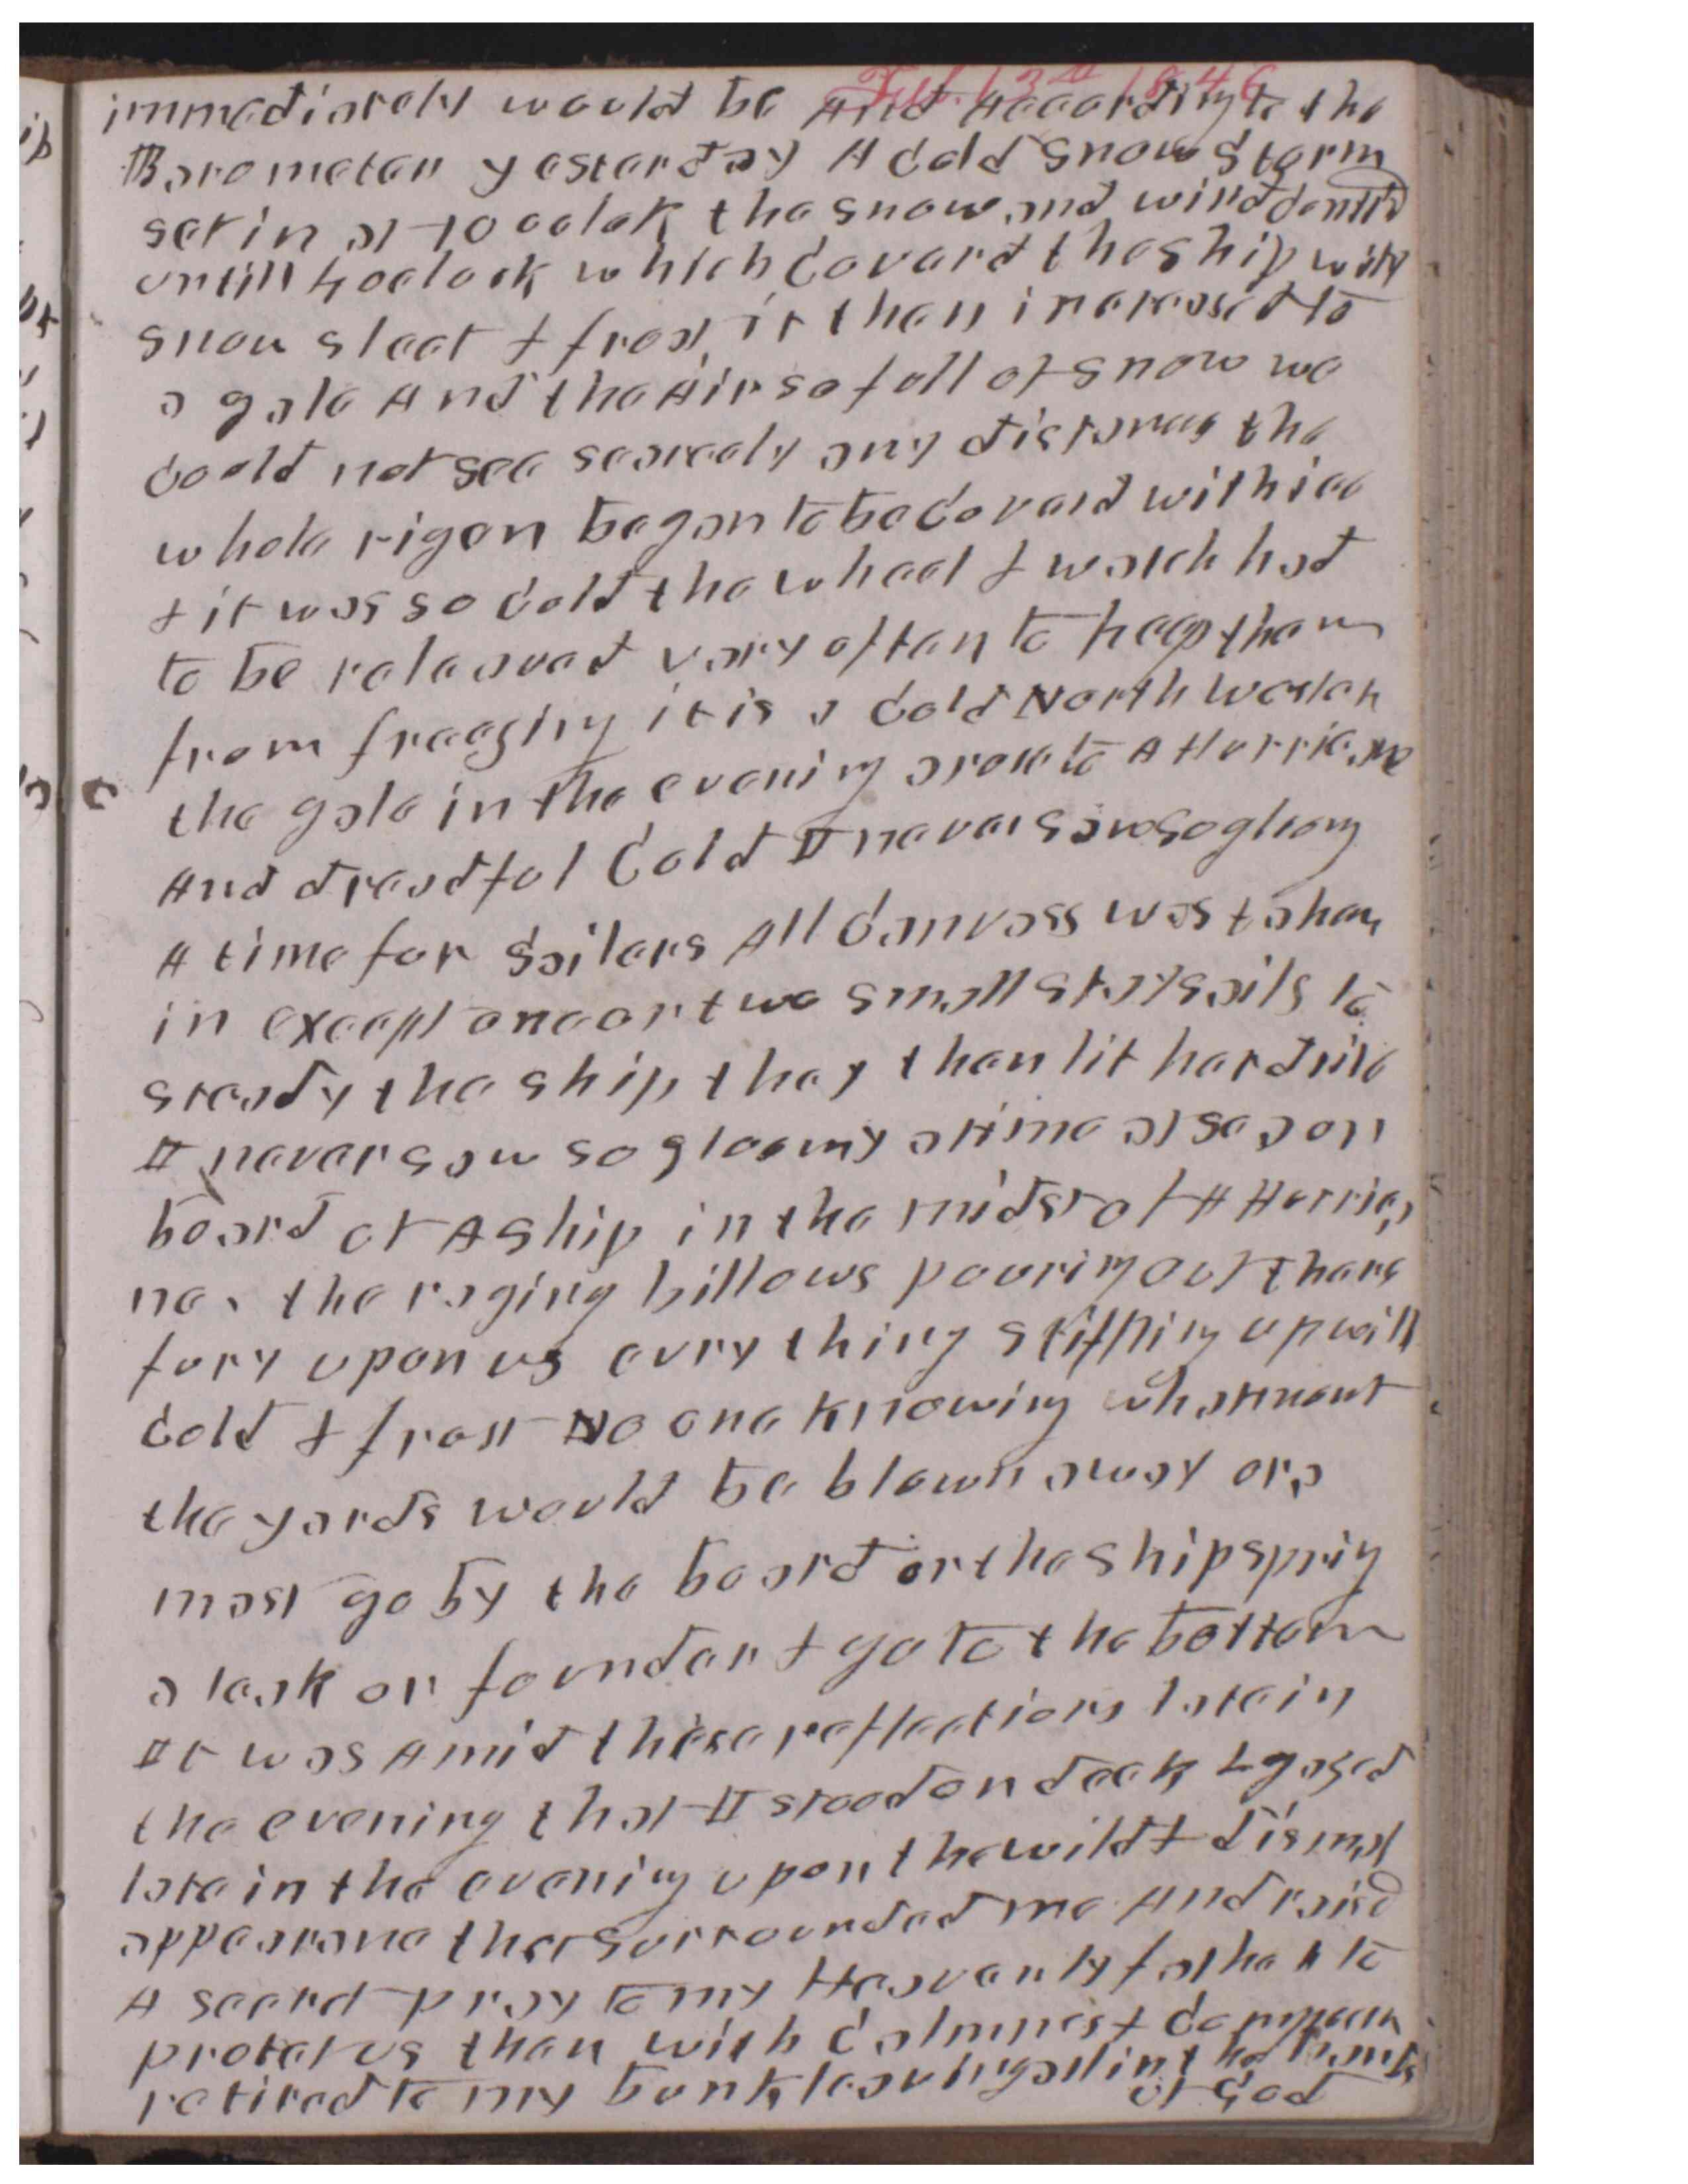 Feb. 13th 1846
immediately would be And According to the
Barometer yesterday A Cold Snow Storm
set in at 10 oclok the snow and wind contin
untill 4 oclock which Coverd the ship with
snow sleet & frost, it then increased to
a gale And the Air so full of snow we
Could not see scarcely any distance the
whole rigen began to be Coverd with ice
& it was so Cold the wheel & watch had
to be releaved very often to keep them
from freezing it is a Cold North wester
the gale in the evening arose to A Hurricane
And dreadful Cold I never saw so glomy
A time for Sailers All Canvass was taken
in except one or two small staysails to
steady the ship they then lit hard
I never saw so gloomy a time at sea on
board of A Ship in the midst of A Hurrica
ne. the raging billows pouring out there
fury upon us evry thing stiffling up with
Cold & frost No one knowing what moment
the yards would be blown away or a
mast go by the board or the ship spring
a leak or founder & go to the bottom
It was Amid these reflections late in
the evening that I stood on deck & gazed
late in the evening upon the wild & dismal
appearance that surrounded me And raised
A secret pray to my Heavenly father to
protect us then with Calmnest Composure
retired to my bunk leaving all in the hands
of God